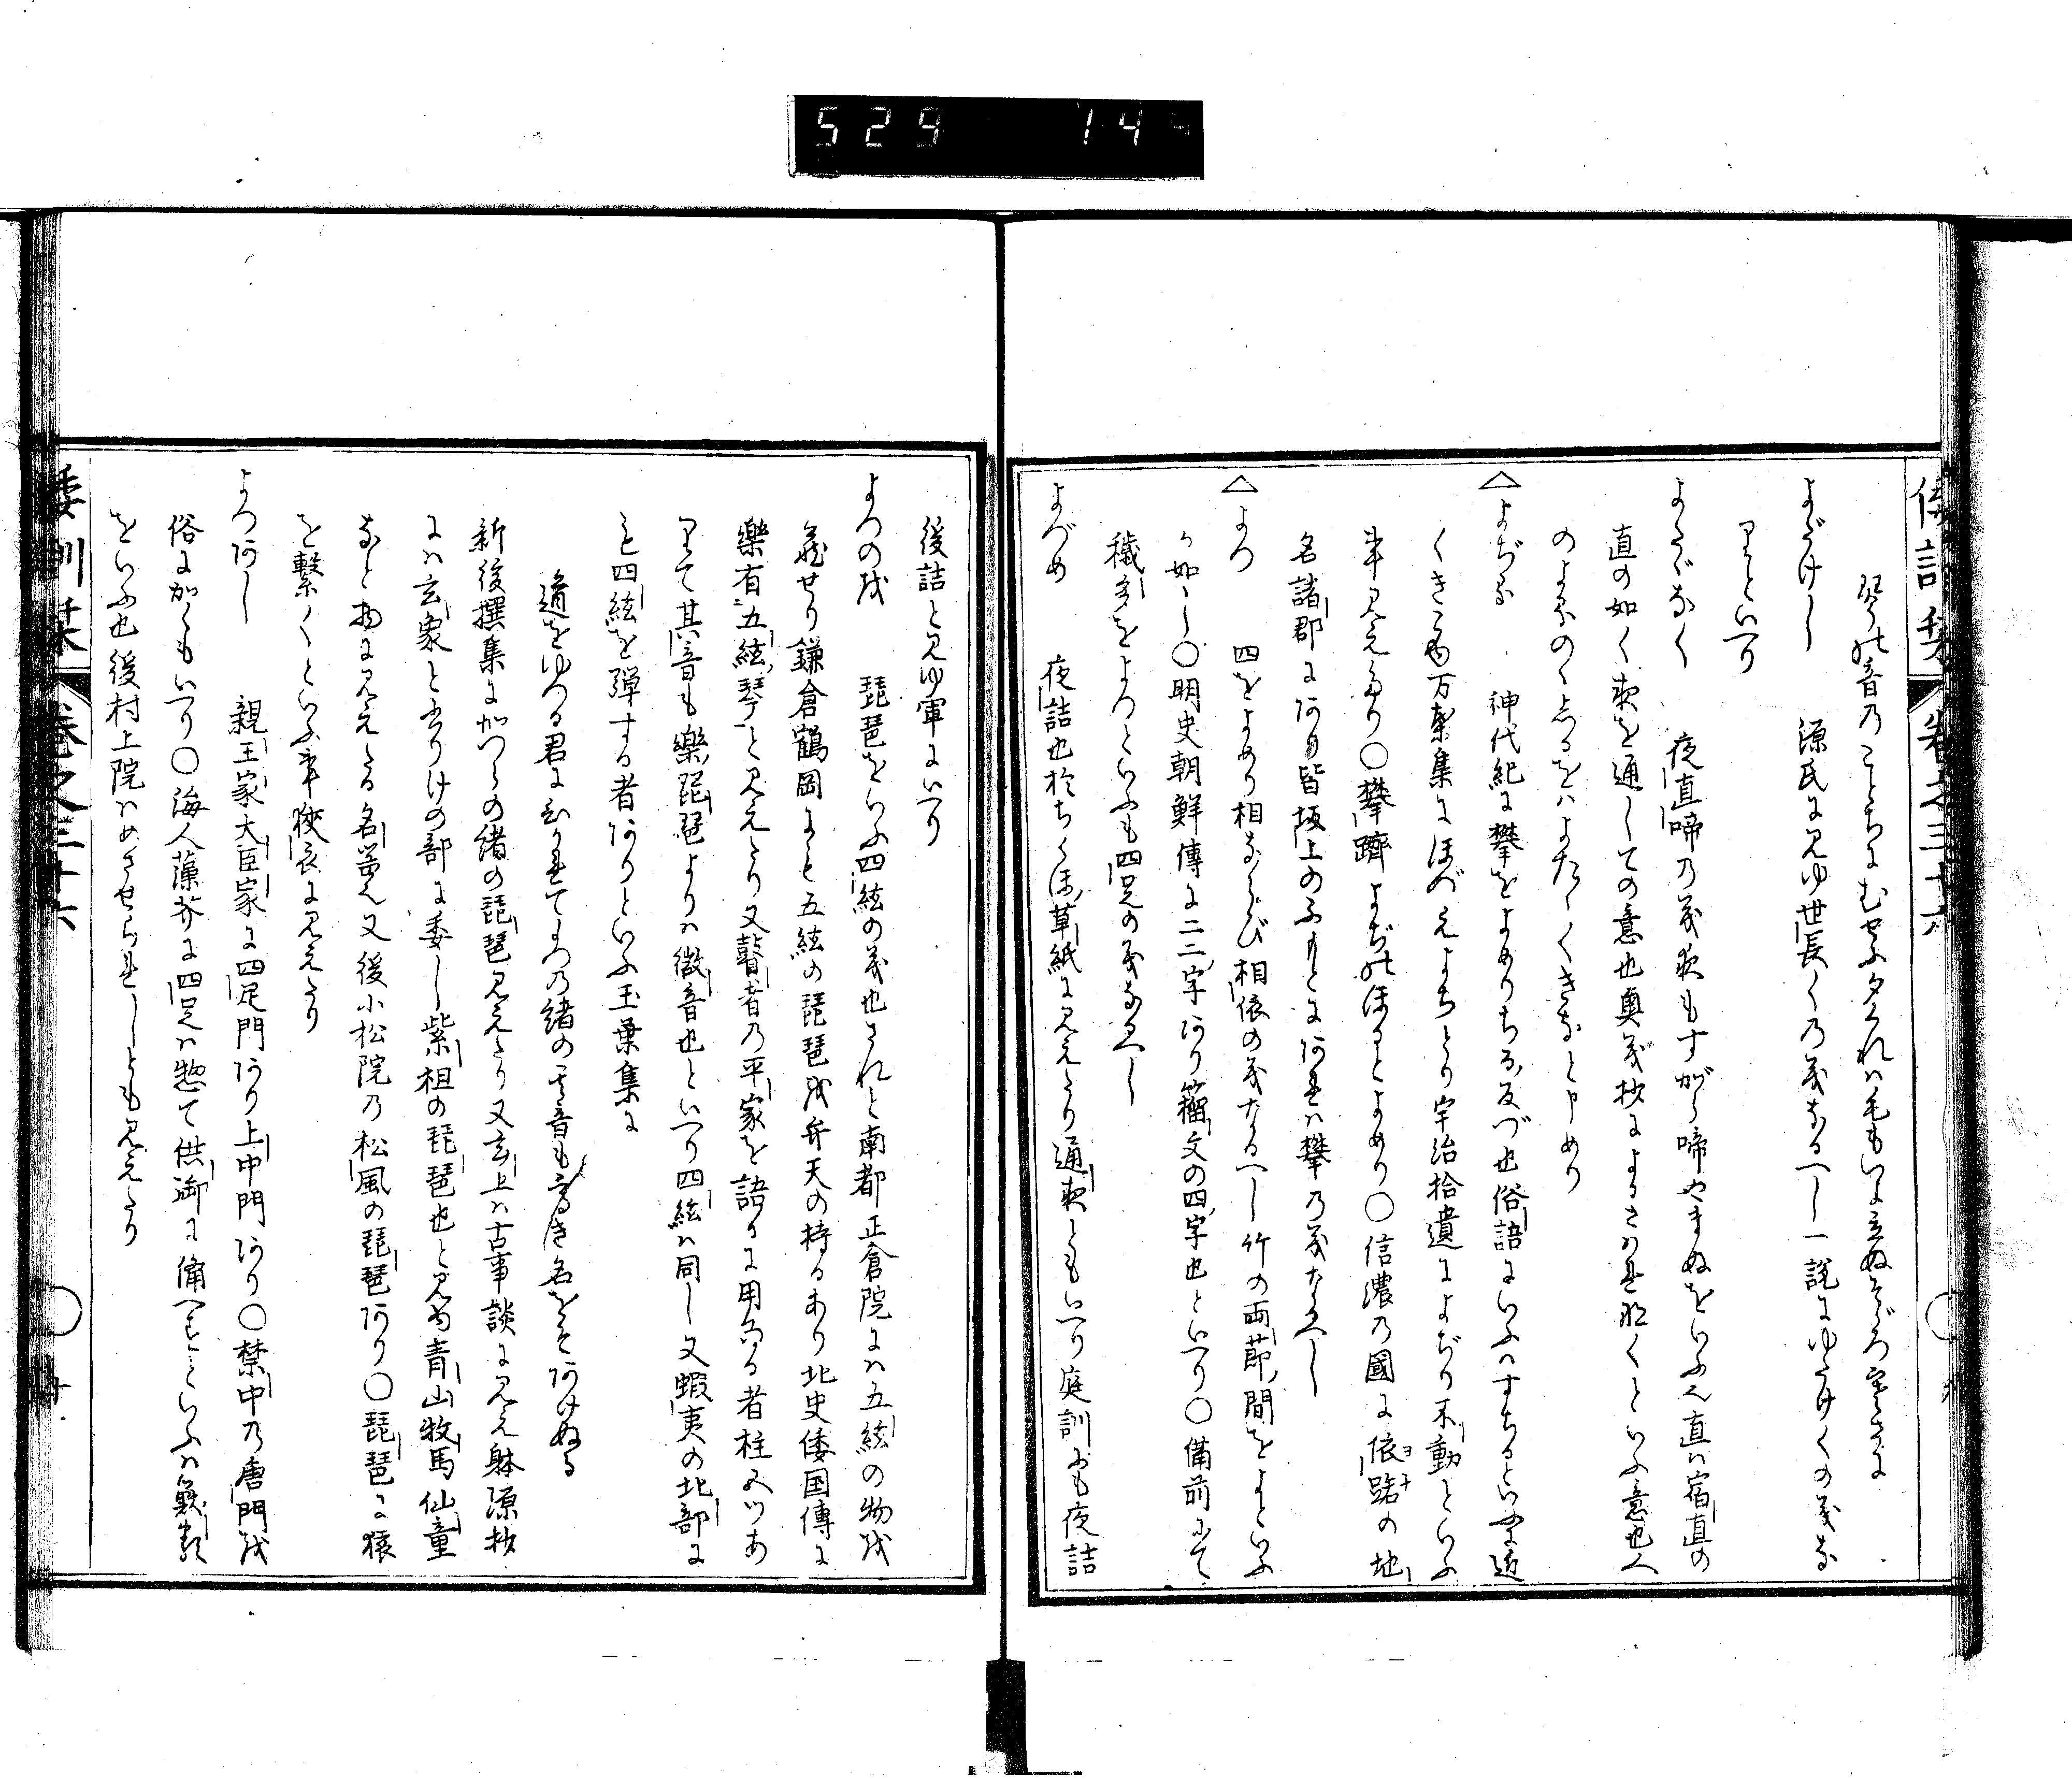 529 14
倭訓栞 卷之三十六
琴の音のことちにむせふ夕くれハ毛もいよ立ぬそゞろ寒さに
よだけし 源氏に見ゆ世長くの義なるへし一説にゆたけくの義な
りといへり
よたゞなく 夜直啼の義夜もすがら啼やまぬをいふ直ハ宿直の
直の如く夜を通しての意也奥義抄に
△よぢる 神代紀に攀をよめりちる反づ也俗語にいふハすちるといふに近
くきこゆ万葉集にほづえよちとり宇治拾遺によぢり不動といふ
事見えたり〇攀躋よぢのほるとよめり〇信濃の國に依踞の地
名諸郡にあり皆坂上のふもとにあれハ攀の義なるへし
△よつ 四をよめり相ならび相依の義なるへし竹の両節間をよといふ
か如し〇明史朝鮮傳に二二字あり籀文の四字也といへり〇備前にて
穢多をよつといふも四足の義なるへし
よづめ 夜詰也おちくほ草紙に見えたり通夜ともいへり庭訓にも夜詰
後詰と見ゆ軍にいへり
よつのを 琵琶をいふ四絃の義也されと南都正倉院にハ五絃の物を
蔵せり鎌倉鶴岡にも五絃の琵琶を弁天の持るあり北史倭国傳に
樂有五絃琴と見えたり又瞽者の平家を語るに用ゐる者柱五ツあ
りて其音も樂琵琶よりハ微音也といへり四絃ハ同し又蝦夷の北部に
も四絃を弾する者ありといふ玉葉集に
道をゆつる君にひかれてよつの緒の其音も高き名をそあけぬる
新後撰集に加つらの緒の琵琶見えたり又玄上ハ古事談に見え躰源抄
にハ玄象と出りけの部に委し紫担の琵琶也と見ゆ青山牧馬仙童
なと物に見えたる名器也又後小松院の松風の琵琶あり〇琵琶に猿
を繋くといふ事狹衣に見えたり
よつあし 親王家大臣家に四足門あり上中門あり〇禁中の唐門を
俗に加くもいへり〇海人藻芥に四足ハ惣て供御に備へすといふハ獣類
をいふ也後村上院ハめさせられしとも見えたり
倭訓栞 卷之三十六